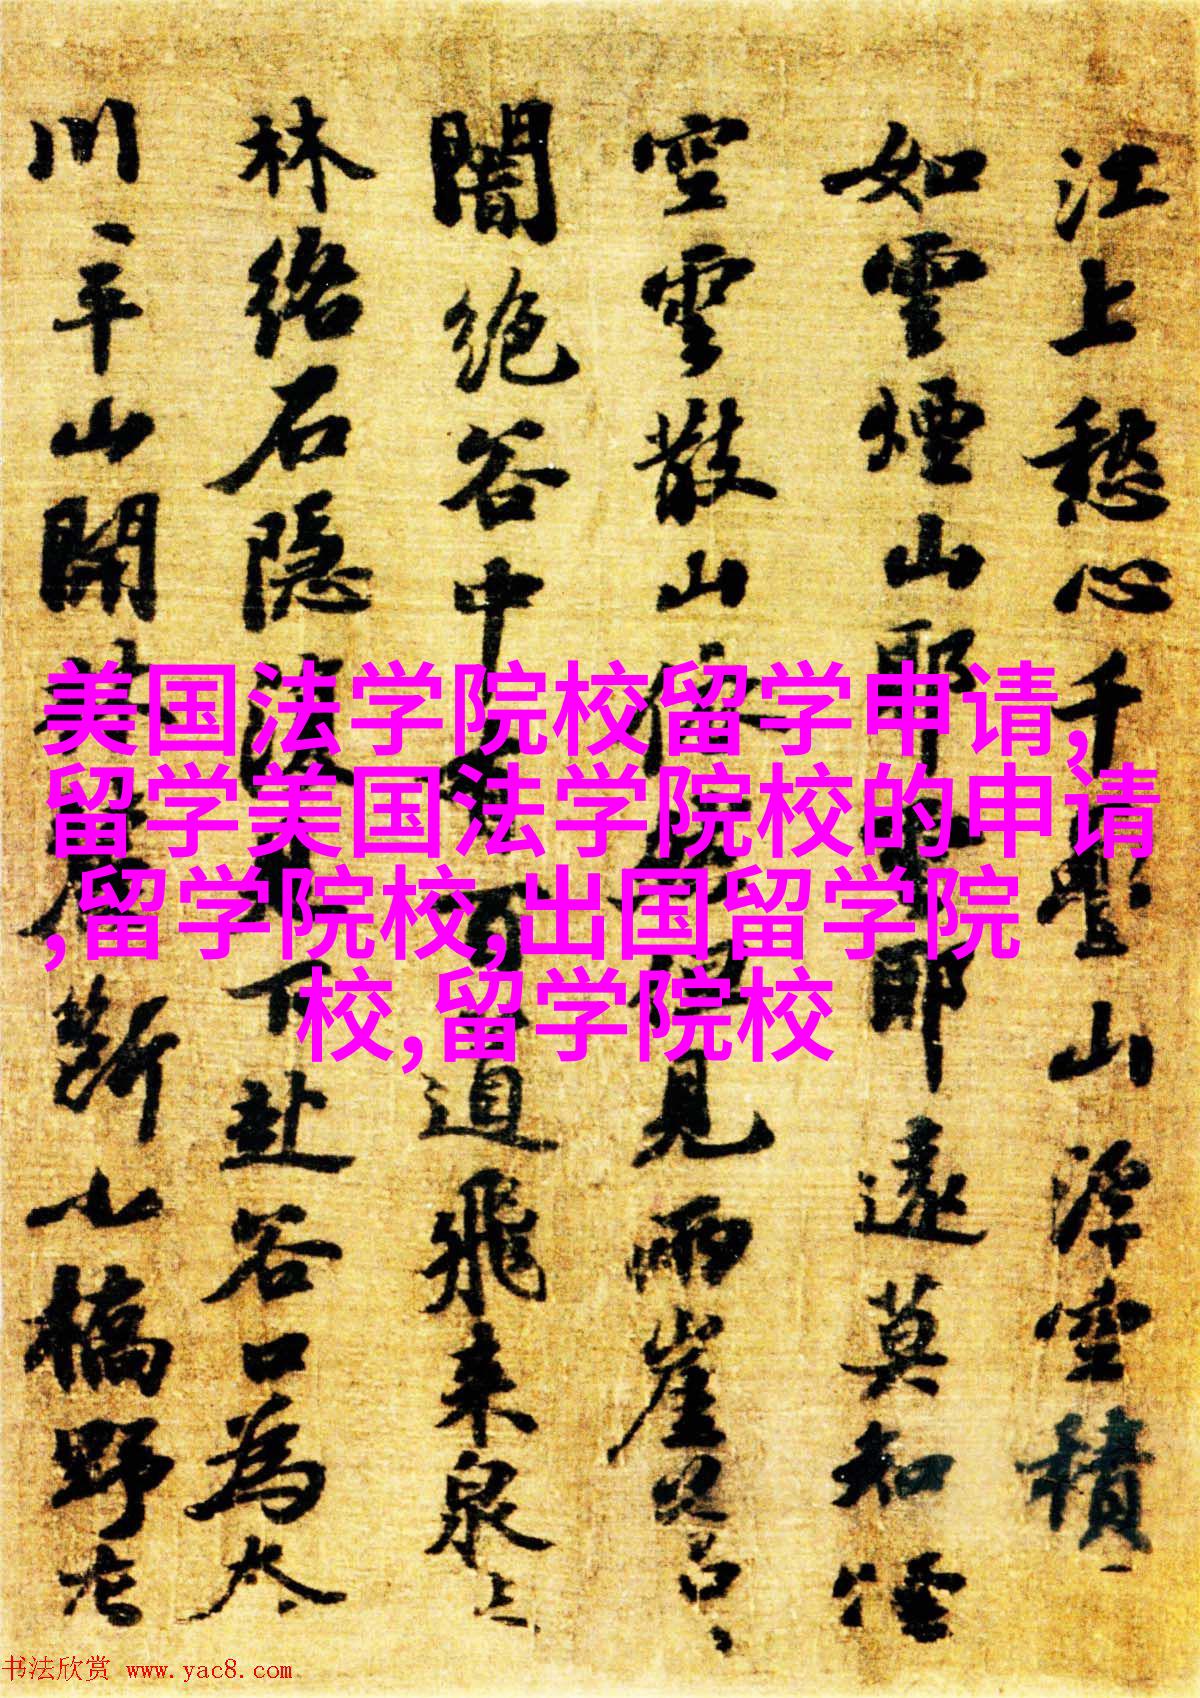 江上愁心千疊山浮空積
如雲煙山耶雲耶遠莫知煙
空雲散山依然但見兩崖蒼
闇絕谷中有百道飛來泉
林絡石隱復見下赴谷口為奔
川平山開林麓斷小橋野店
美国法学院校留学申请,
留学美国法学院校的申请
,留学院校,出国留学院
校,留学院校
书法欣赏 www.yac8.com